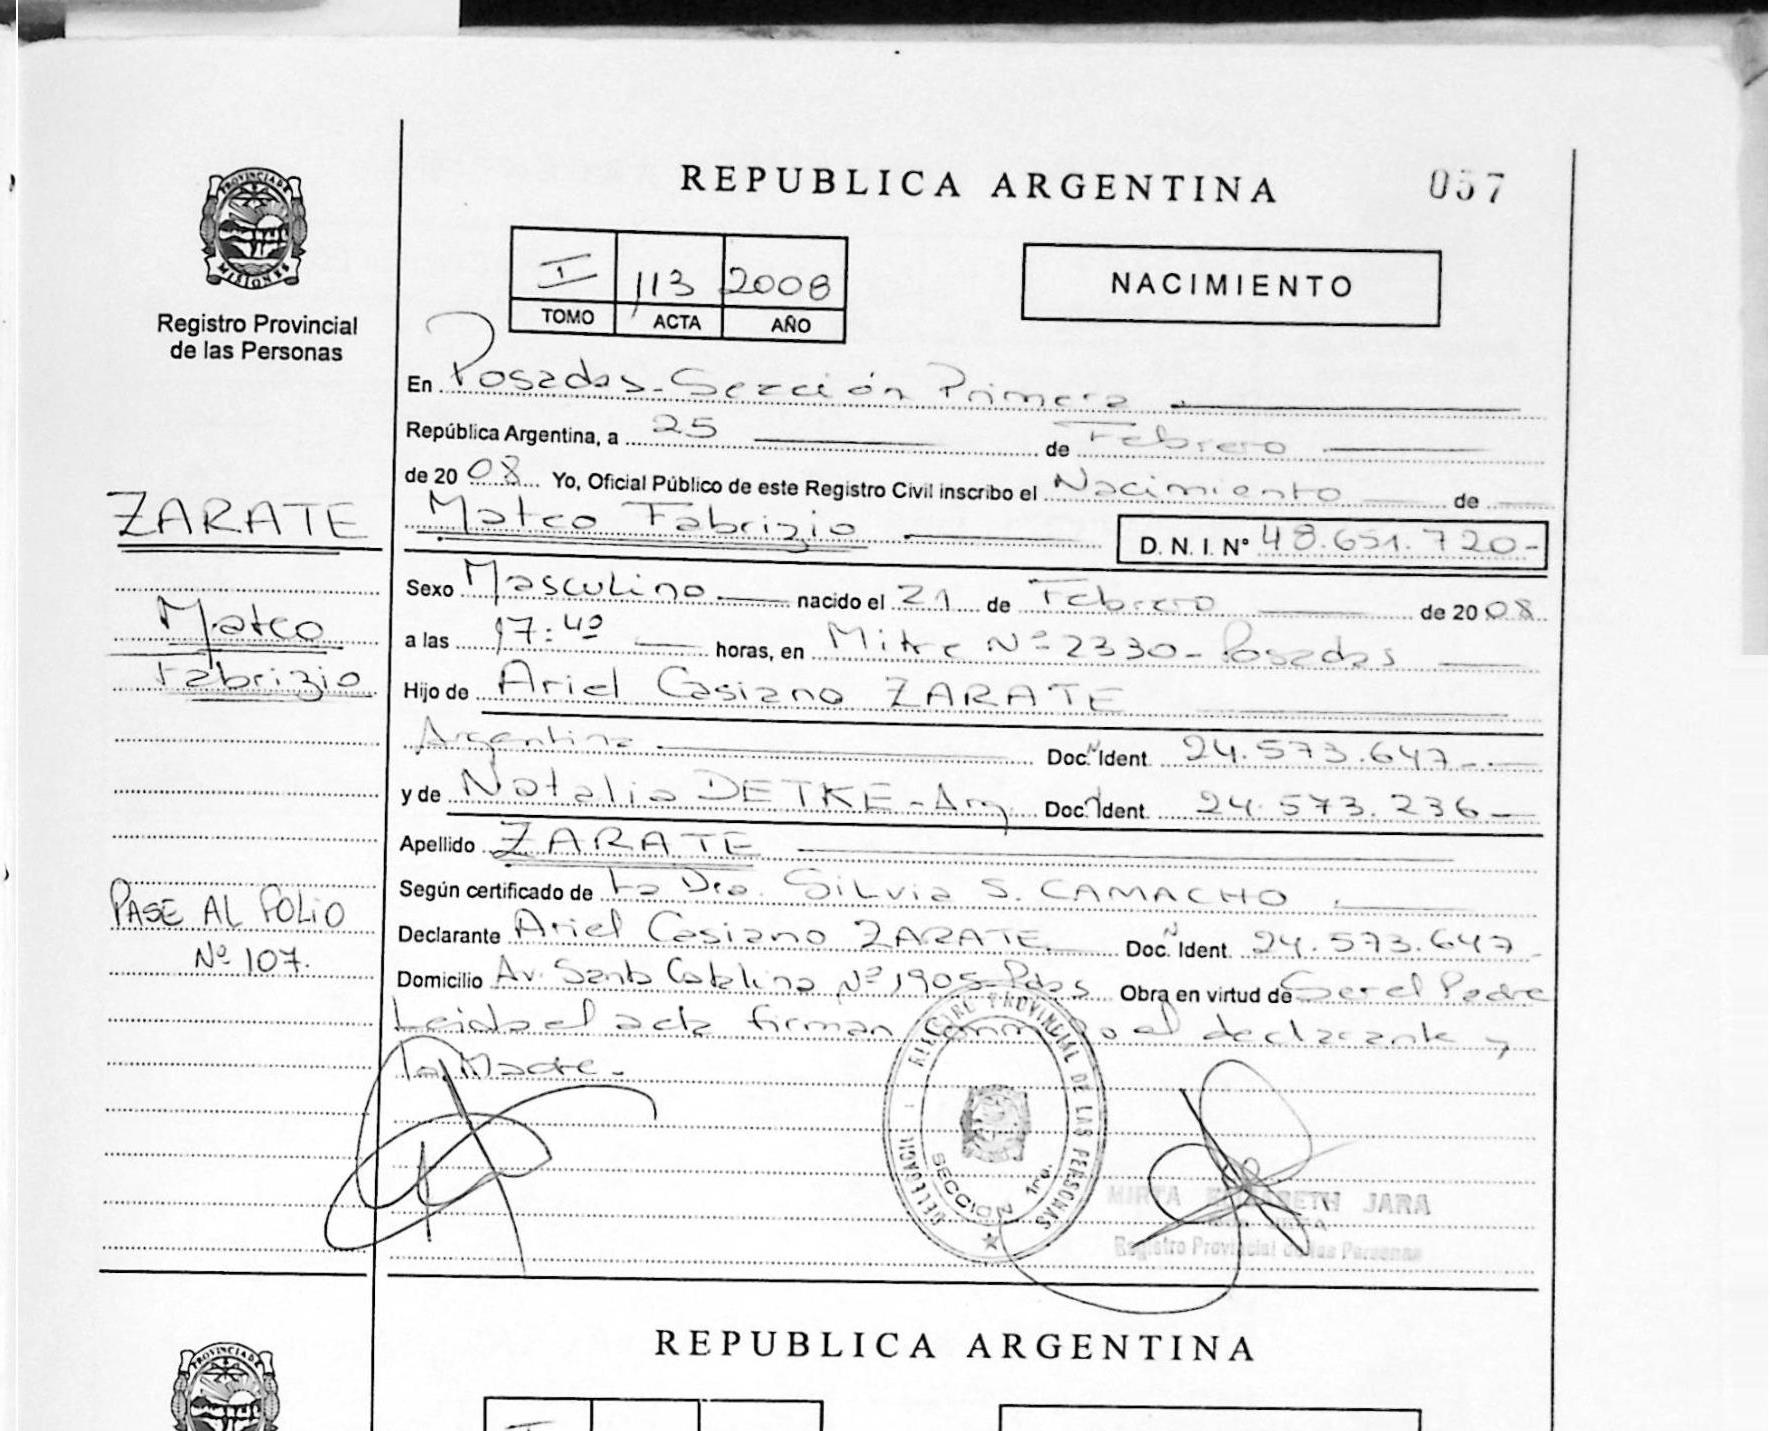 REPUBLICA ARGENTINA
057
PROVINCIA DE
MISIONES
Registro Provincial
de las Personas
I 113 2008
TOMO ACTA AÑO
NACIMIENTO
En Posadas-Sección Primera
República Argentina, a 25 de Febrero
de 20 08 Yo, Oficial Público de este Registro Civil inscribo el Nacimiento de
Mateo Fabrizio D. N. I. Nº 48.651.720-
Sexo Masculino nacido el 21 de Febrero de 20 08
a las 17:40 horas, en Mitre Nº 2330-Posadas
Hijo de Ariel Casiano ZARATE
Argentina Doc. N Ident. 24.573.647
y de Natalia DETKE-Arg. Doc. Ident. 24.573.236
Apellido ZARATE
Según certificado de La Dra. Silvia S. CAMACHO
Declarante Ariel Casiano ZARATE Doc. N Ident. 24.573.647
Domicilio Av. Santa Catalina Nº 1905-Pdas Obra en virtud de Ser el Padre
Leida el acta firman conmigo el declarante y
la Madre.
ZARATE
Mateo
Fabrizio
PASE AL FOLIO
Nº 107.
PROVINCIAL DE LAS PERSONAS
SECCION 1ra.
MIRTA ELIZABETH JARA
Registro Provincial de las Personas
REPUBLICA ARGENTINA
PROVINCIA DE